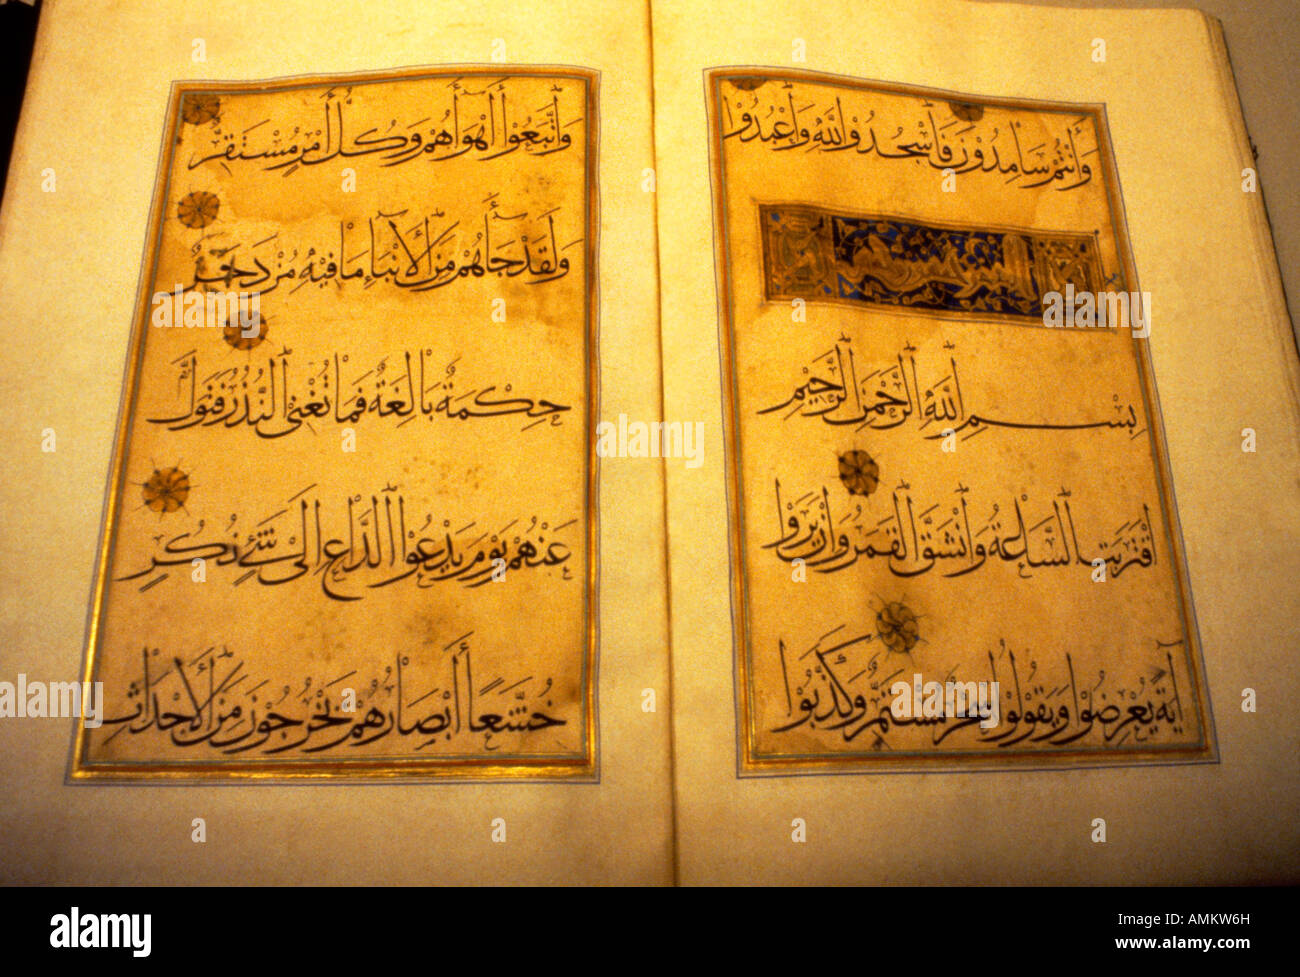 وَأَنتُمْ سَامِدُونَ فَاسْجُدُوا لِلَّهِ وَاعْبُدُوا
بِسْمِ اللَّهِ الرَّحْمَنِ الرَّحِيمِ
اقْتَرَبَتِ السَّاعَةُ وَانْشَقَّ الْقَمَرُ وَإِنْ يَرَوْا
آيَةً يُعْرِضُوا وَيَقُولُوا سِحْرٌ مُسْتَمِرٌّ وَكَذَّبُوا
وَاتَّبَعُوا أَهْوَاءَهُمْ وَكُلُّ أَمْرٍ مُسْتَقِرٌّ
وَلَقَدْ جَاءَهُمْ مِنَ الْأَنْبَاءِ مَا فِيهِ مُزْدَجَرٌ
حِكْمَةٌ بَالِغَةٌ فَمَا تُغْنِ النُّذُرُ فَتَوَلَّ
عَنْهُمْ يَوْمَ يَدْعُوا الدَّاعِ إِلَى شَيْءٍ نُكُرٍ
خُشَّعًا أَبْصَارُهُمْ يَخْرُجُونَ مِنَ الْأَجْدَاثِ
alamy
Image ID: AMKW6H
www.alamy.com